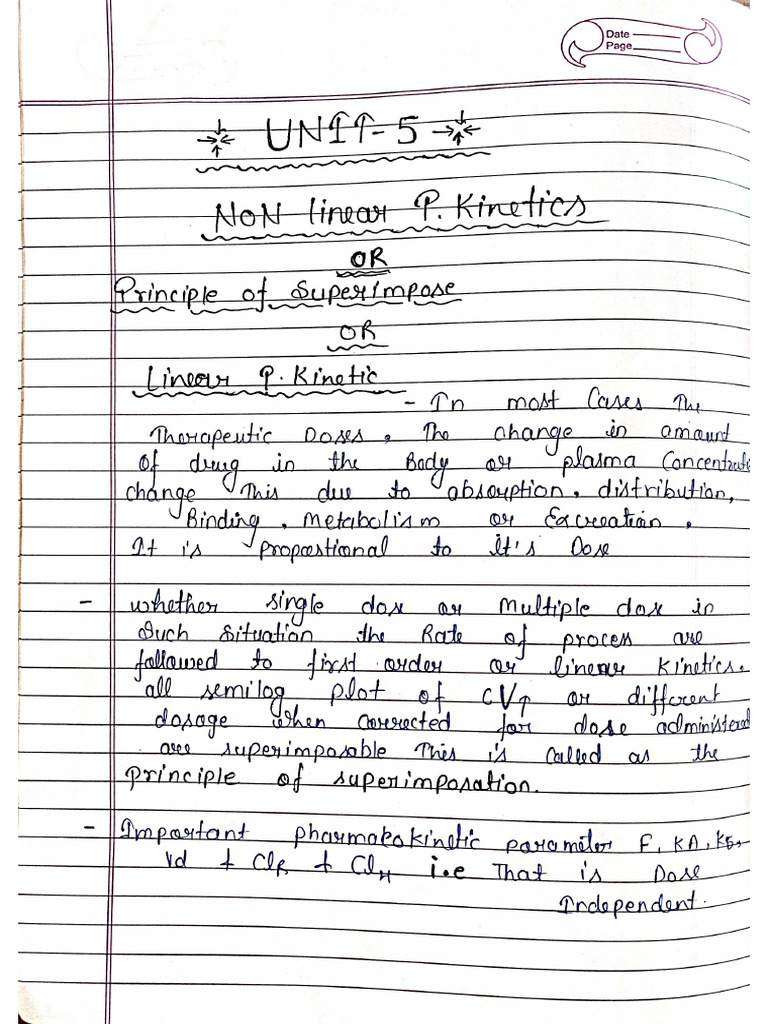 Date
Page
UNIT-5
NON linear P. Kinetics
OR
Principle of Superimpose
OR
Linear P. Kinetic
- In most Cases The
Therapeutic Doses, The change in amount
of drug in the Body or plasma Concentrate
change This due to absorption, distribution,
Binding, Metabolism or Excreation,
It is propostional to It's Dose
- whether single dose or Multiple dose in
Such Situation the Rate of process are
followed to first order or linear Kinetics.
all semilog plot of CV↑ or different
dosage when corrected for dose administered
are superimposable This is called as the
principle of superimposation.
- Important pharmakokinetic parameter F, KA, KE,
Vd + ClR + ClH i.e That is Dose
Independent.